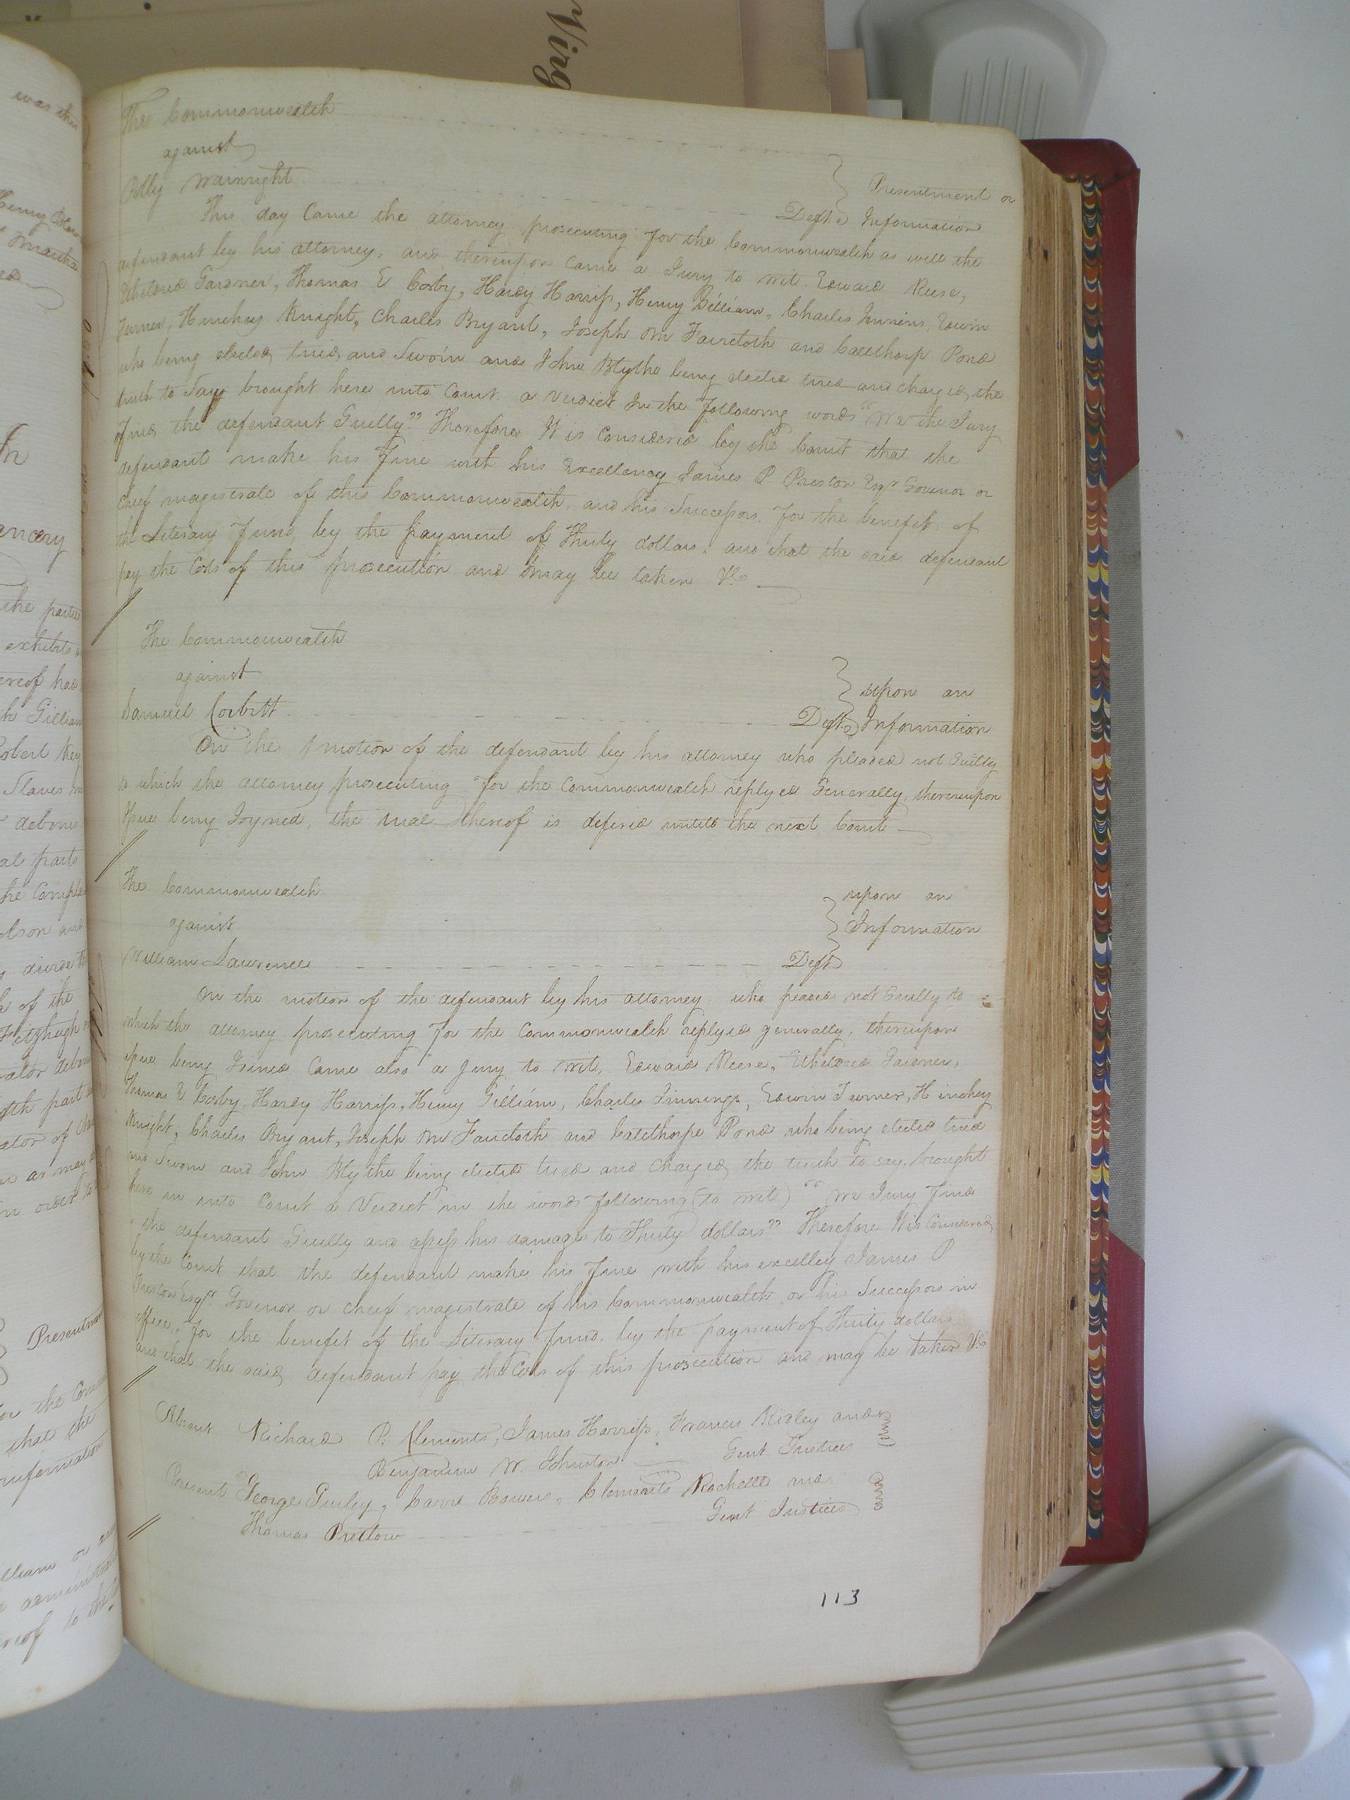 Virg
was this
The Commonwealth
against
Polly Wainright
Presentment or
Deft. Information
This day Came the attorney prosecuting for the Commonwealth as will the
defendant by his attorney, and thereupon came a Jury to wit. Edward Reese,
Etheldred Gardner, Thomas E Cosby, Hardy Harriss, Henry Gilliam, Charles Jinnins, Edwin
Turner, Hinchey Knight, Charles Bryant, Joseph M Faircloth and Calthorp Pond
who being elected tried and Sworn and John Blythe being elected tried and charged the
truth to Say brought here into Court a verdict In the following words "We the Jury
find the defendant Guilty" Therefore It is Considered by the Court that the
defendant make his Fine with his Excellency James P Preston Esqr Govenor or
Cheif magistrate of this Commonwealth and his Successors for the benefit of
the Literary Fund by the payment of Thirty dollars, and that the said defendant
pay the Costs of this prosecution and may be taken &c
The Commonwealth
against
Samuel Corbitt
upon an
Deft Information
On the motion of the defendant by his attorney who pleaded not Guilty
to which the attorney prosecuting for the Commonwealth replyed Generally, thereupon
Issue being Joyned, the trial thereof is defered untill the next Court
The Commonwealth
against
William Lawrence
upon an
Information
Deft
On the motion of the defendant by his attorney who pleaded not Guilty to
which the attorney prosecuting for the Commonwealth replyed generally, thereupon
issue being Joined Came also a Jury to wit, Edward Reese, Etheldred Gardner,
Thomas E Cosby, Hardy Harriss, Henry Gilliam, Charles Jinnings, Edwin Turner, Hinchey
Knight, Charles Bryant, Joseph M Faircloth and Calthorpe Pond who being elected tried
and Sworn and John Blythe being elected tried and Charged the truth to say, brought
here in into Court a Verdict in the words following (to wit) "We Jury find
the defendant Guilty and assess his damages to Thirty dollars" Therefore It is Considered
by the Court that the defendant make his Fine with his excelley James P
Preston Esqr. Govenor or Cheif magistrate of this Commonwealth or his Successors in
office, for the benefit of the Literary fund, by the payment of Thirty dollars
and that the said defendant pay the Costs of this prosecution and may be taken &c
Absent Richard P. Clements, James Harriss, Francis Ridley and
Benjamin W. Johnston Gent Justices
Present George Gurley, Carr Bowers, Clements Rochelle and
Thomas Pretlow Gent Justices
113